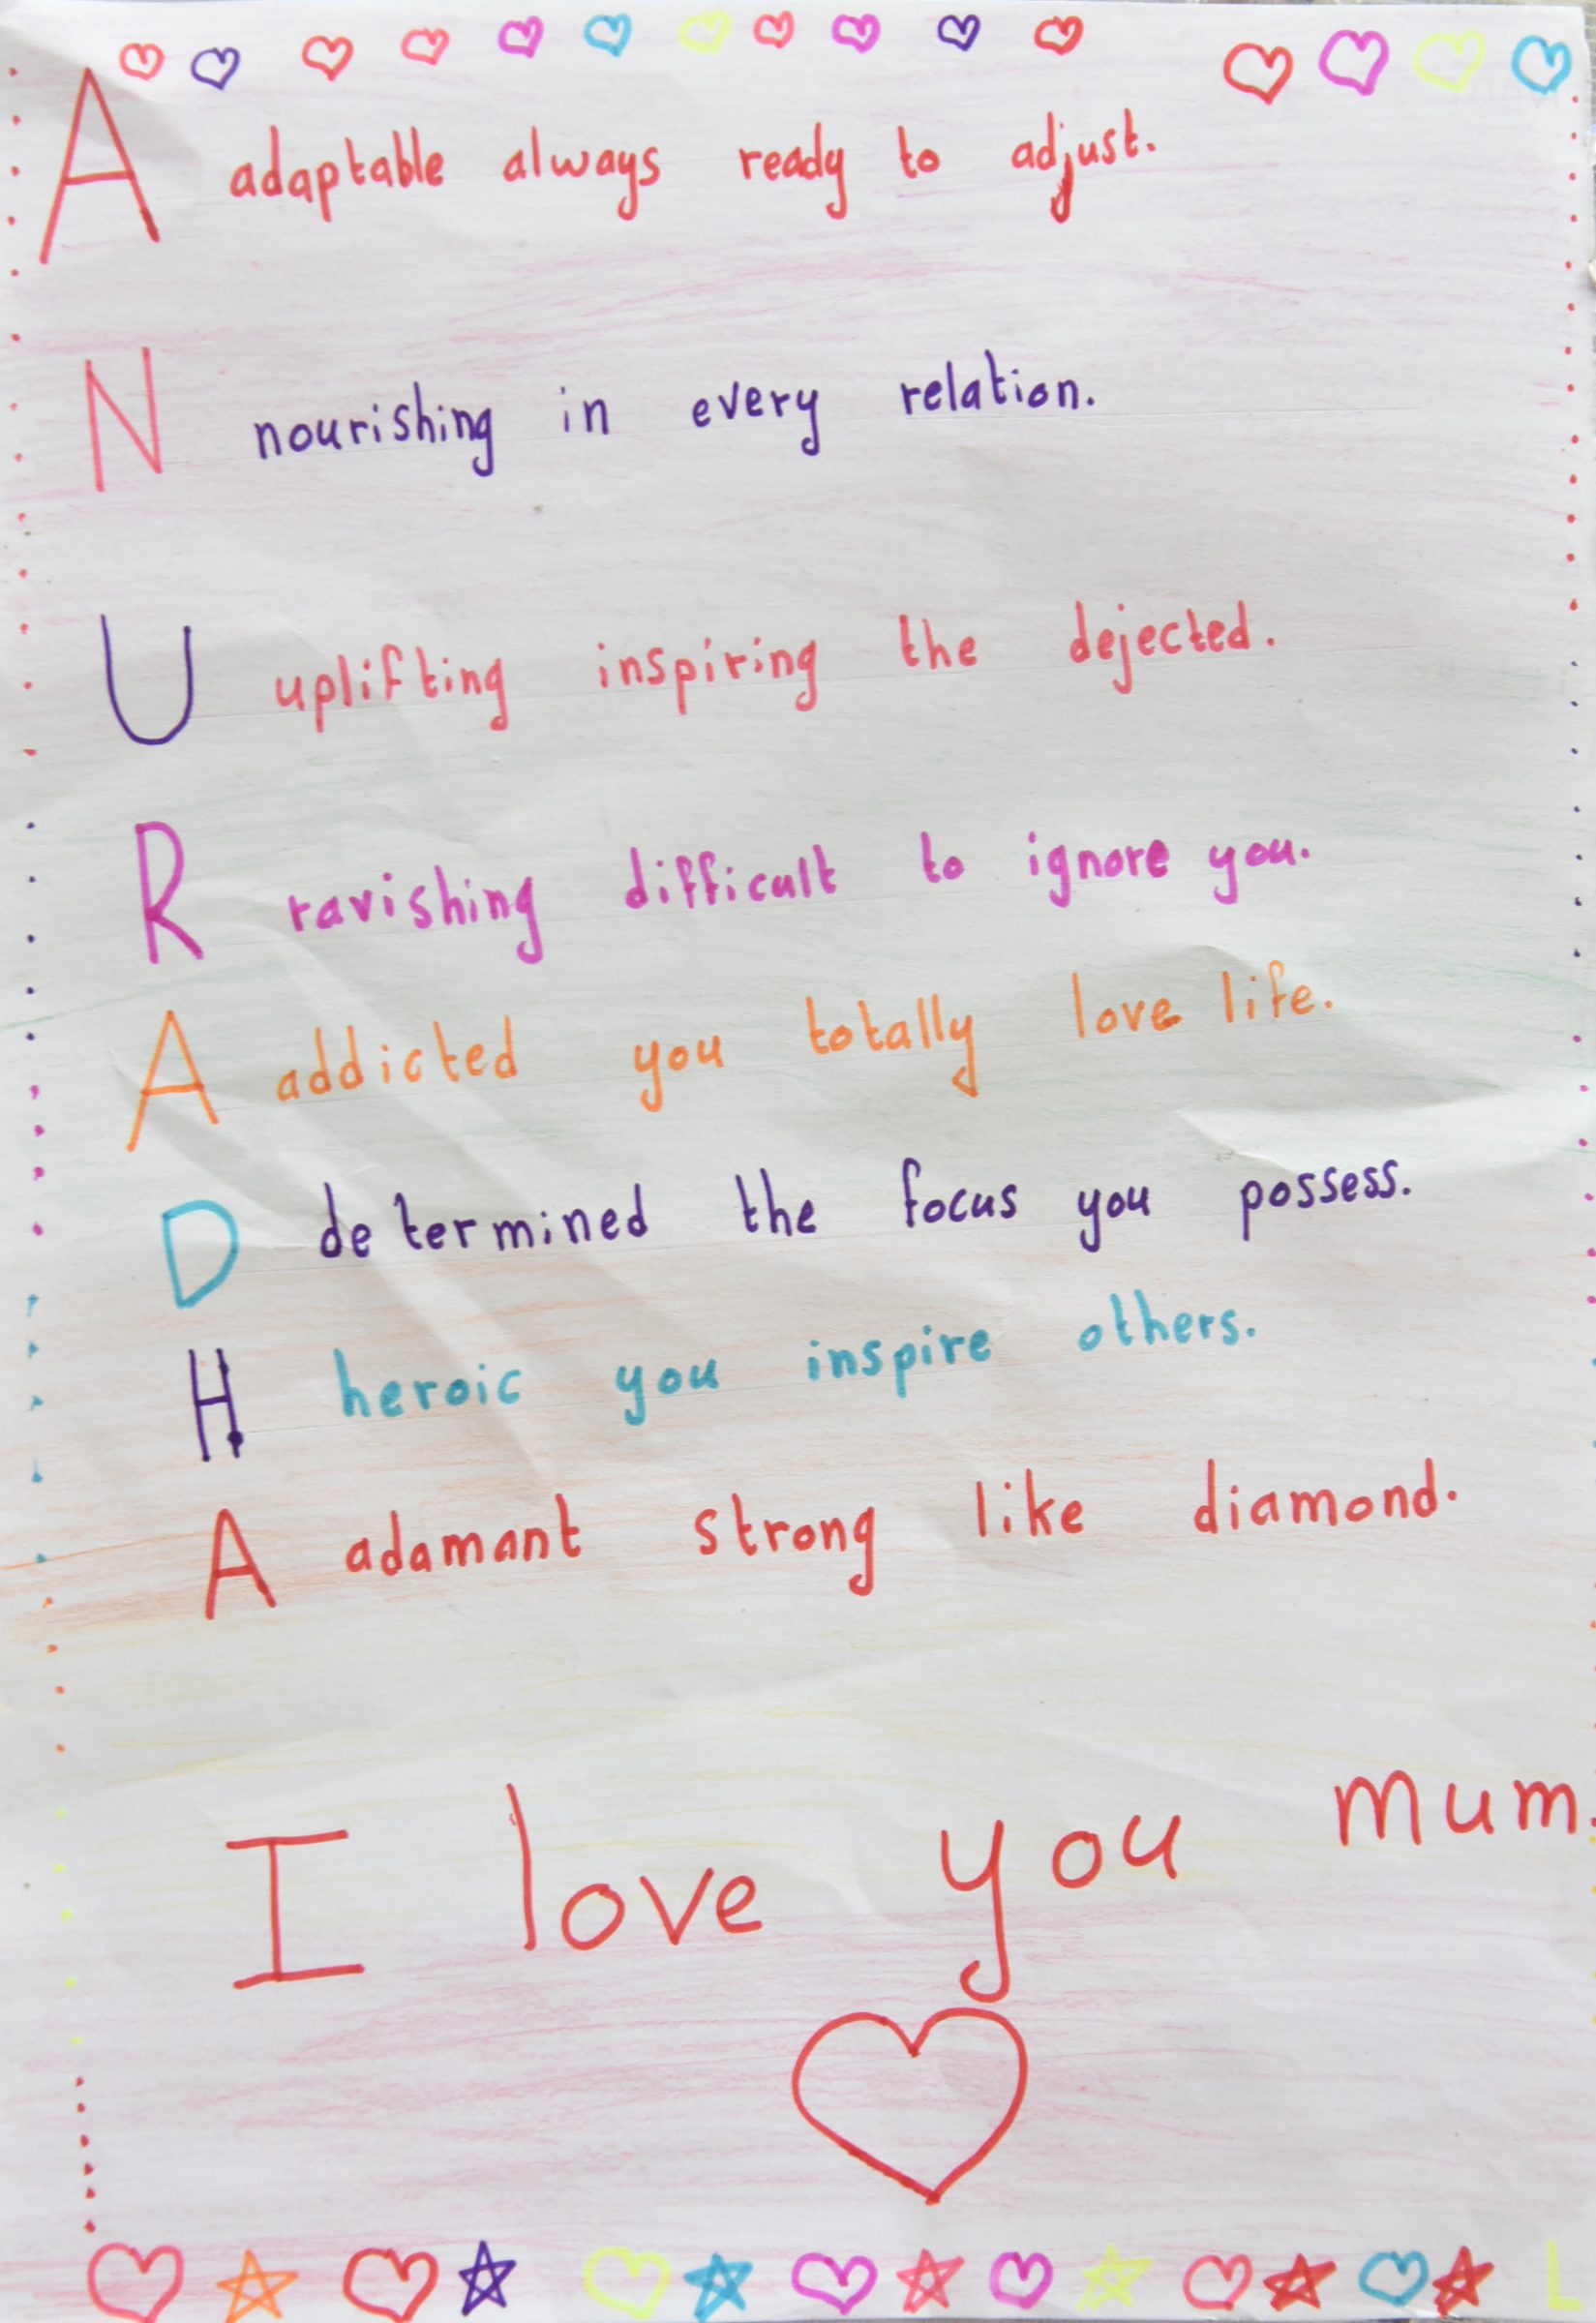 A adaptable always ready to adjust.
N nourishing in every relation.
U uplifting inspiring the dejected.
R ravishing difficult to ignore you.
A addicted you totally love life.
D determined the focus you possess.
H heroic you inspire others.
A adamant strong like diamond.
I love you mum.